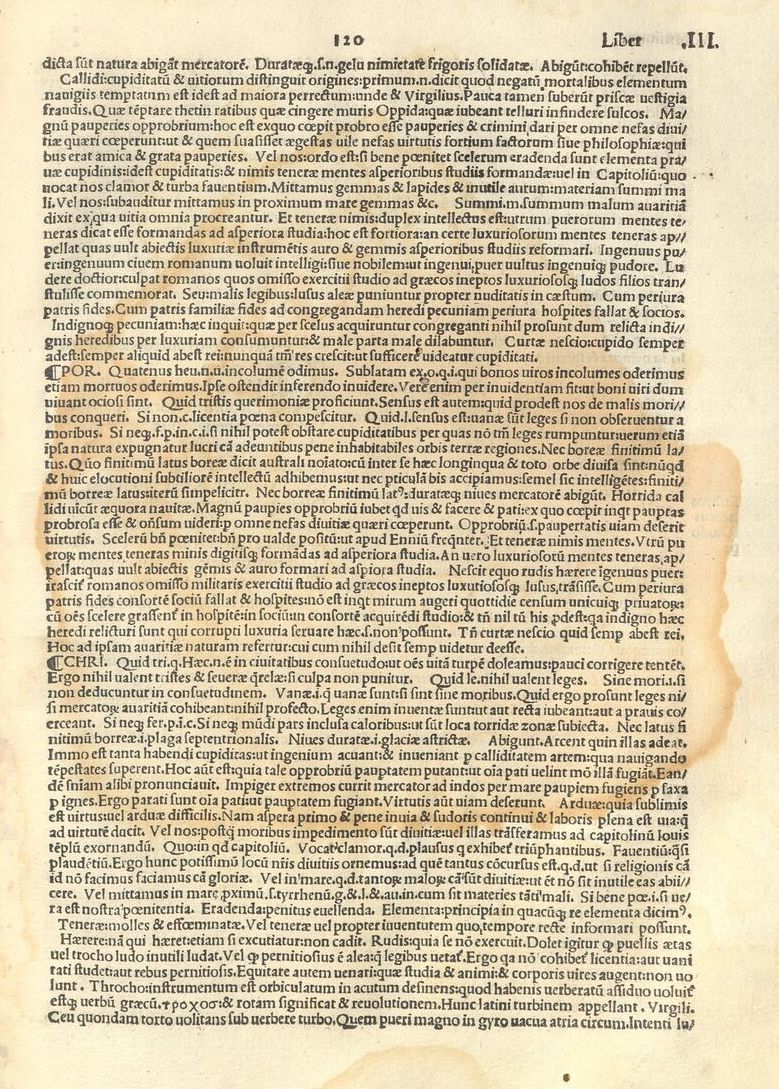 120 Liber .III.
dicta sũt natura abigãt mercatorẽ. Durateq;.s.n.gelu nimietate frigoris solidatæ. Abigũt:cohibẽt repellũt.
Callidi:cupiditatũ & uitiorum distinguit origines:primum.n.dicit quod negatũ mortalibus elementum
nauigiis temptatum est idest ad maiora perrectum:unde & Virgilius.Pauca tamen suberũt priscæ uestigia
fraudis.Quæ tẽptare thetin ratibus quæ cingere muris Oppida:quæ iubeant telluri infindere sulcos. Ma/
gnũ pauperies opprobrium:hoc est exquo cœpit probro esse pauperies & crimini dari per omne nefas diui/
tiæ quæri cœperunt:ut & quem suasisset ægestas uile nefas uirtutis fortium factorum siue philosophiæ:qui
bus erat amica & grata pauperies. Vel nos:ordo est:si bene pœnitet scelerum eradenda sunt elementa pra/
uæ cupidinis:idest cupiditatis:& nimis teneræ mentes asperioribus studiis formandæ:uel in Capitoliũ:quo
uocat nos clamor & turba fauentium.Mittamus gemmas & lapides & inutile aurum:materiam summi ma
li.Vel nos:subauditur mittamus in proximum mare gemmas &c. Summi.m.summum malum auaritiã
dixit ex qua uitia omnia procreantur. Et teneræ nimis:duplex intellectus est:utrum puerorum mentes te/
neras dicat esse formandas ad asperiora studia:hoc est fortiora:an certe luxuriosorum mentes teneras ap//
pellat quas uult abiectis luxuriæ instrumẽtis auro & gemmis asperioribus studiis reformari. Ingenuus pu/
er:ingenuum ciuem romanum uoluit intelligi:siue nobilem:ut ingenui puer uultus ingenuiq; pudore. Lu
dere doctior:culpat romanos quos omisso exercitii studio ad græcos ineptos luxuriososq; ludos filios tran/
stulisse commemorat. Seu:malis legibus:lusus aleæ puniuntur propter nuditatis in cæstum. Cum periura
patris fides.Cum patris familiæ fides ad congregandam heredi pecuniam periura hospites fallat & socios.
Indignoq; pecuniam:hæc inquit:quæ per scelus acquiruntur congreganti nihil prosunt dum relicta indi//
gnis heredibus per luxuriam consumuntur:& male parta male dilabuntur. Curtæ nescio:cupido semper
adest:semper aliquid abest rei:nunquã tm̃ res crescit:ut sufficere uideatur cupiditati.
¶POR. Quatenus heu.n.u.incolumẽ odimus. Sublatam ex.o.q.i.qui bonos uiros incolumes oderimus
etiam mortuos oderimus.Ipse ostendit inferendo inuidere. Vere enim per inuidentiam fit:ut boni uiri dum
uiuant ociosi sint. Quid tristis querimoniæ proficiunt.Sensus est autem:quid prodest nos de malis mori//
bus conqueri. Si non.c.licentia pœna compescitur. Quid.l.sensus est:uanæ sũt leges si non obseruentur a
moribus. Si neq;.f.p.in c.i.si nihil potest obstare cupiditatibus per quas nõ tm̃ leges rumpuntur:uerum etiã
ipsa natura expugnatur lucri cã adeuntibus pene inhabitabiles orbis terræ regiones.Nec boreæ finitimũ la/
tus.Quo finitimũ latus boreæ dicit australi noiato:cũ inter se hæc longinqua & toto orbe diuisa sint:nũqd
& huic elocutioni subtiliorẽ intellectũ adhibemus:ut nec pticulã bis accipiamus:semel sic intelligẽtes:finiti/
mũ borreæ latus:iterũ simpliciter. Nec borreæ finitimũ lat⁹:duratæq; niues mercatorẽ abigũt. Horrida cal
lidi uicũt æquora nauitæ.Magnũ paupies opprobriũ iubet qd uis & facere & pati:ex quo cœpit inqt pauptas
probrosa esse & oñsum uideri:p omne nefas diuitiæ quæri cœperunt. Opprobriũ.s.paupertatis uiam deserit
uirtutis. Scelerũ bñ pœnitet:bñ pro ualde positũ:ut apud Enniũ freqnter. Et teneræ nimis mentes. Vtrũ pu
eroꝝ mentes teneras minis digitisq; formãdas ad asperiora studia.An uero luxuriosorũ mentes teneras ap/
pellat:quas uult abiectis gẽmis & auro formari ad aspiora studia. Nescit equo rudis hærere ĩgenuus puer:
irascit̃ romanos omisso militaris exercitii studio ad græcos ineptos luxuriososq; lusus trãsisse.Cum periura
patris fides consortẽ sociũ fallat & hospites:nõ est inqt mirum augeri quottidie censum unicuiq; priuatoꝝ:
cũ oẽs scelere grassent̃ in hospitẽ:in sociũ:un consortẽ acquirẽdi studio:& tñ nil tũ his ꝓdest:qa indigno hæc
heredi relicturi sunt qui corrupti luxuria seruare hæc.s.non possunt. Tñ curtæ nescio quid semp abest rei.
Hoc ad ipsam auaritiæ naturam refertur:cui cum nihil desit semp uidetur deesse.
¶CHRI. Quid tri.q.Hæc.n.ẽ in ciuitatibus consuetudo:ut oẽs uitã turpẽ doleamus:pauci corrigere tentẽt.
Ergo nihil ualent tristes & seueræ q̃relæ:si culpa non punitur. Quid le.nihil ualent leges. Sine mori.i.si
non deducuntur in consuetudinem. Vanæ.i.q̃ uanæ sunt:si sint sine moribus.Quid ergo prosunt leges ni/
si mercatoꝝ auaritiã cohibeant:nihil profecto.Leges enim inuentæ sunt:ut aut recta iubeant:aut a prauis co/
erceant. Si neq; fer.p.i.c.Si neq; mũdi pars inclusa caloribus:ut sũt loca torridæ zonæ subiecta. Nec latus fi
nitimũ borreæ.i.plaga septentrionalis. Niues duratæ.i.glaciæ astrictæ. Abigunt.Arcent quin illas adeat.
Immo est tanta habendi cupiditas:ut ingenium acuant:& inueniant p calliditatem artem:qua nauigando
tẽpestates superent.Hoc aũt est:quia tale opprobriũ pauptatem putant:ut oĩa pati uelint mõ illã fugiãt.Ean/
dẽ sñiam alibi pronunciauit. Impiger extremos currit mercator ad indos per mare paupiem fugiens p saxa
p ignes.Ergo parati sunt oĩa pati:ut pauptatem fugiant.Virtutis aũt uiam deserunt. Arduæ:quia sublimis
est uirtus:uel arduæ difficilis.Nam aspera primo & pene inuia & sudoris continui & laboris plena est uia:q̃
ad uirtutẽ ducit. Vel nos:postq̃ moribus impedimento sũt diuitiæ:uel illas trãsferamus ad capitolinũ Iouis
tẽplũ exornandũ. Quo:in qd capitoliũ. Vocat clamor.q.d.plausus q exhibet̃ triũphantibus. Fauentiũ:q̃si
plaudẽtiũ.Ergo hunc potissimũ locũ nr̃is diuitiis ornemus:ad quẽ tantus cõcursus est.q.d.ut si religionis cã
id nõ facimus faciamus cã gloriæ. Vel in mare.q.d.tantoꝝ maloꝝ cã sũt diuitiæ:ut ẽt nõ sit inutile eas abii//
cere. Vel mittamus in mare ꝓximũ.s.tyrrhenũ.g.&.l.&.au.in.cum sit materies tãti mali. Si bene pœ.i.si ue/
ra est nostra pœnitentia. Eradenda:penitus euellenda. Elementa:principia in quacũq; re elementa dicim⁹.
Teneræ:molles & effœminatæ.Vel teneræ uel propter iuuentutem quo tempore recte informari possunt.
Hærere:nã qui hæret:etiam si excutiatur:non cadit. Rudis:quia se nõ exercuit.Dolet igitur ꝙ puellis ætas
uel trocho ludo inutili ludat. Vel ꝙ pernitiosius ẽ alea:q̃ legibus uetat̃.Ergo qa nõ cohibet̃ licentia:aut uani
tati studet:aut rebus pernitiosis.Equitare autem uenari:quæ studia & animi:& corporis uires augent:non uo
lunt. Throcho:instrumentum est orbiculatum in acutum desinens:quod habenis uerberatũ assiduo uoluit̃
estq; uerbũ græcũ.τροχος:& rotam significat & reuolutionem.Hunc latini turbinem appellant. Virgili.
Ceu quondam torto uolitans sub uerbere turbo.Quem pueri magno in gyro uacua atria circum.Intenti lu/